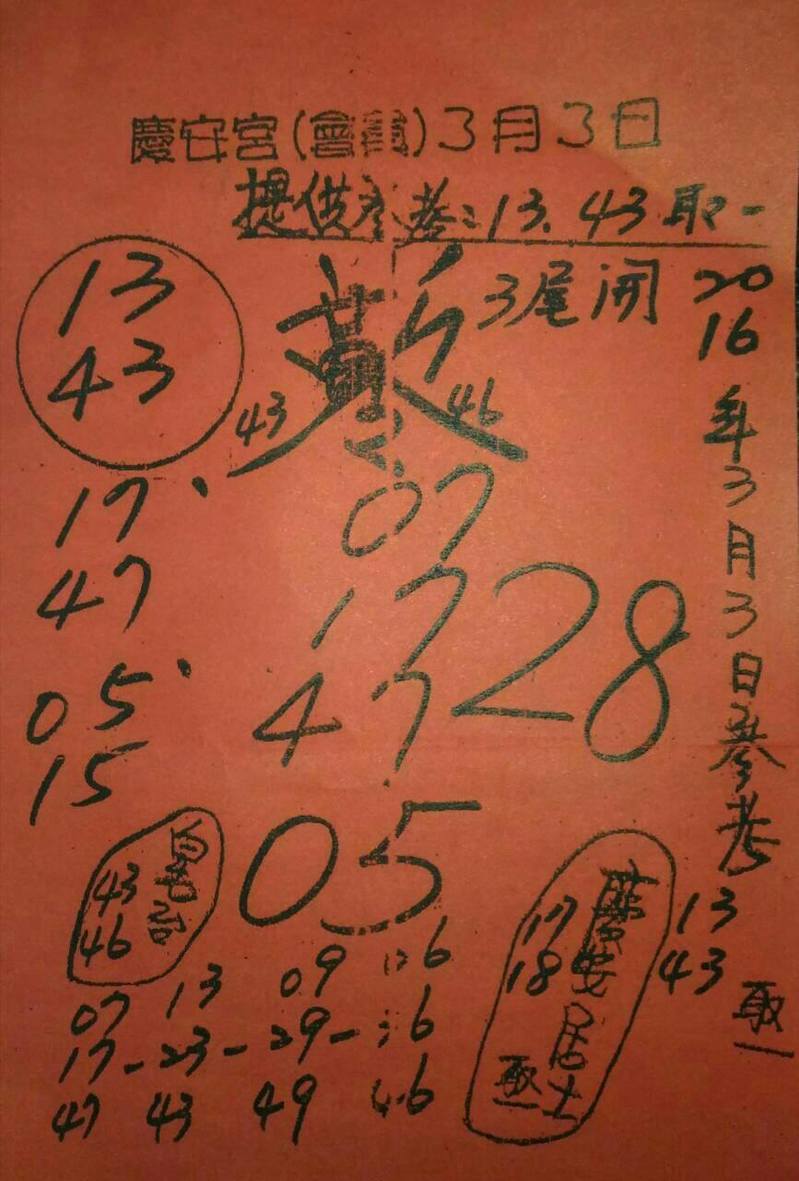 慶安宮(會員)3月3日
提供參考:13.43取一
3尾開
2016年3月3日參考
13
43
43
46
17、
47
05、
15
07
17
47
28
05
43
46
07 13 09 06
17-23-29-16
47 43 49 46
慶安居士
17
18
取一
13
43
取一